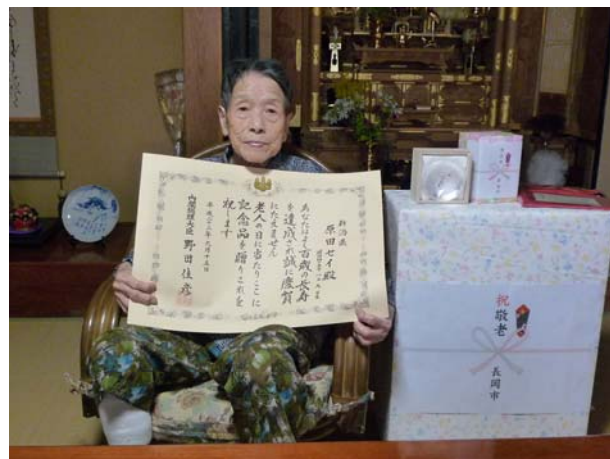 新潟県
原田セイ殿
あなたはよく百歳の長寿
を達成され誠に慶賀
にたえません
老人の日に当たりここに
記念品を贈りこれを
祝します
平成二十三年九月十五日
内閣総理大臣 野田佳彦
祝
敬老
長岡市